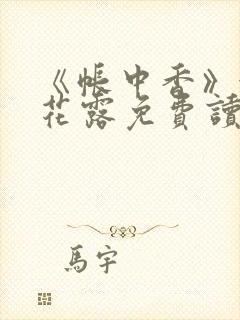 《帳中香》
花露免費讀
馬宇